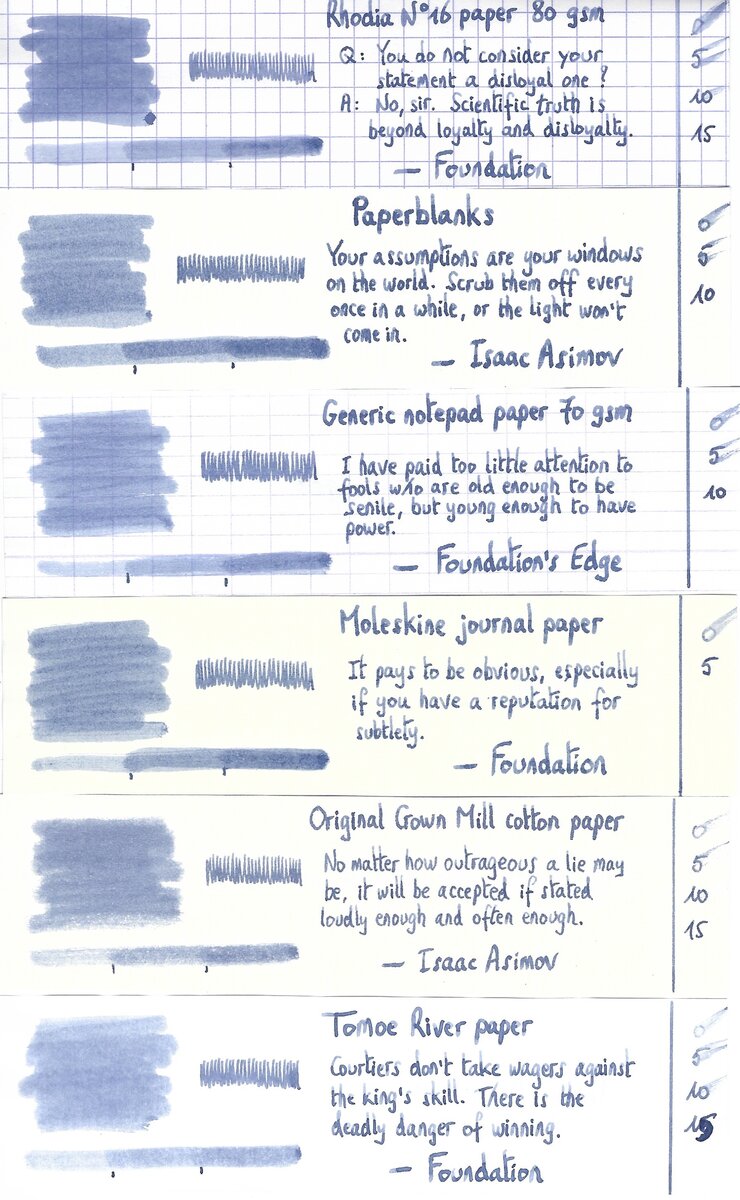 Rhodia N°16 paper 80 gsm
Q: You do not consider your
statement a disloyal one?
A: No, sir. Scientific truth is
beyond loyalty and disloyalty.
— Foundation
0
5
10
15
Paperblanks
Your assumptions are your windows
on the world. Scrub them off every
once in a while, or the light won't
come in.
— Isaac Asimov
0
5
10
Generic notepad paper 70 gsm
I have paid too little attention to
fools who are old enough to be
senile, but young enough to have
power.
— Foundation's Edge
0
5
10
Moleskine journal paper
It pays to be obvious, especially
if you have a reputation for
subtlety.
— Foundation
0
5
Original Crown Mill cotton paper
No matter how outrageous a lie may
be, it will be accepted if stated
loudly enough and often enough.
— Isaac Asimov
0
5
10
15
Tomoe River paper
Courtiers don't take wagers against
the king's skill. There is the
deadly danger of winning.
— Foundation
0
5
10
15